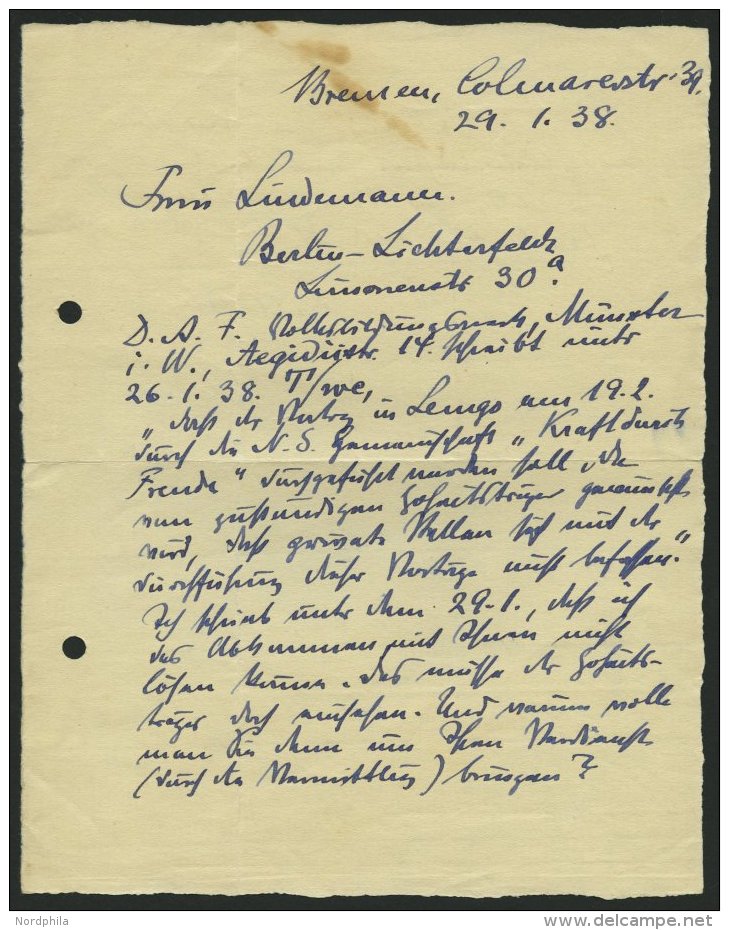 Bremen, Colmarerstr. 39.
29. 1. 38.
Frau Lindemann.
Berlin-Lichterfelde
30a.
D. A. F. Volksbildungswerk, Münster
i. W., Aegidiistr. 14. schreibt unter
26. 1. 38. T/we,
"daß der Vortrag in Lemgo am 19.2.
durch die N. S. Gemeinschaft "Kraft durch
Freude" durchgeführt werden soll, da
vom zuständigen Hoheitsträger gewünscht
wird, daß private Stellen sich mit der
Durchführung dieser Vorträge nicht befassen."
Ich schrieb unter dem 29.1., daß ich
das Abkommen mit Ihnen nicht
lösen könne. Das müsse der Hoheits-
träger doch einsehen. Und warum wolle
man Sie denn um Ihren Verdienst
(durch die Vermittlung) bringen?
Nordphila
delcampe.net